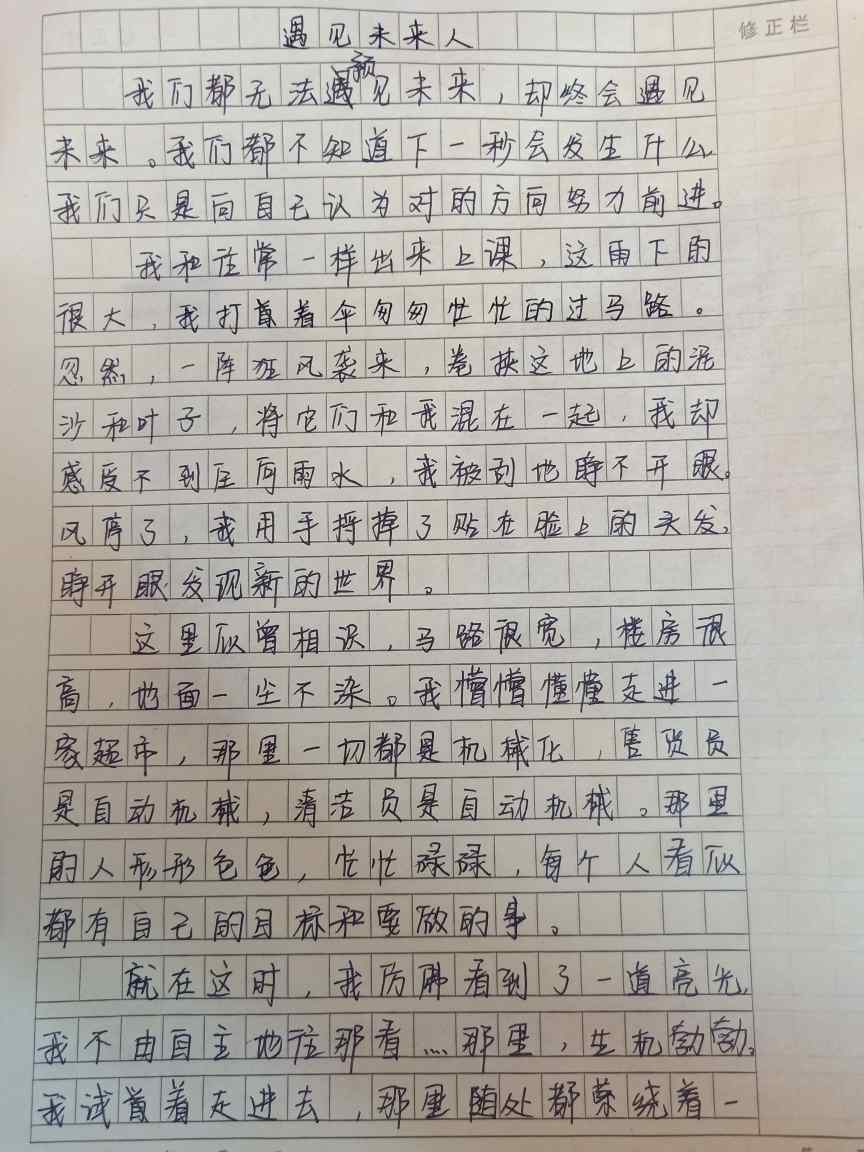 遇见未来人
修正栏
预
我们都无法遇见未来，却终会遇见
未来。我们都不知道下一秒会发生什么
我们只是向自己认为对的方向努力前进。
我和往常一样出来上课，这雨下的
很大，我打着伞匆匆忙忙的过马路。
忽然，一阵狂风袭来，卷挟这地上的泥
沙和叶子，将它们和我混在一起，我却
感受不到任何雨水，我被刮地睁不开眼。
风停了，我用手捋掉了贴在脸上的头发，
睁开眼发现新的世界。
这里似曾相识，马路很宽，楼房很
高，地面一尘不染。我懵懵懂懂走进一
家超市，那里一切都是机械化，售货员
是自动机械，清洁员是自动机械。那里
的人形形色色，忙忙碌碌，每个人看似
都有自己的目标和要做的事。
就在这时，我仿佛看到了一道亮光，
我不由自主地往那看…那里，生机勃勃。
我试着走进去，那里随处都萦绕着一